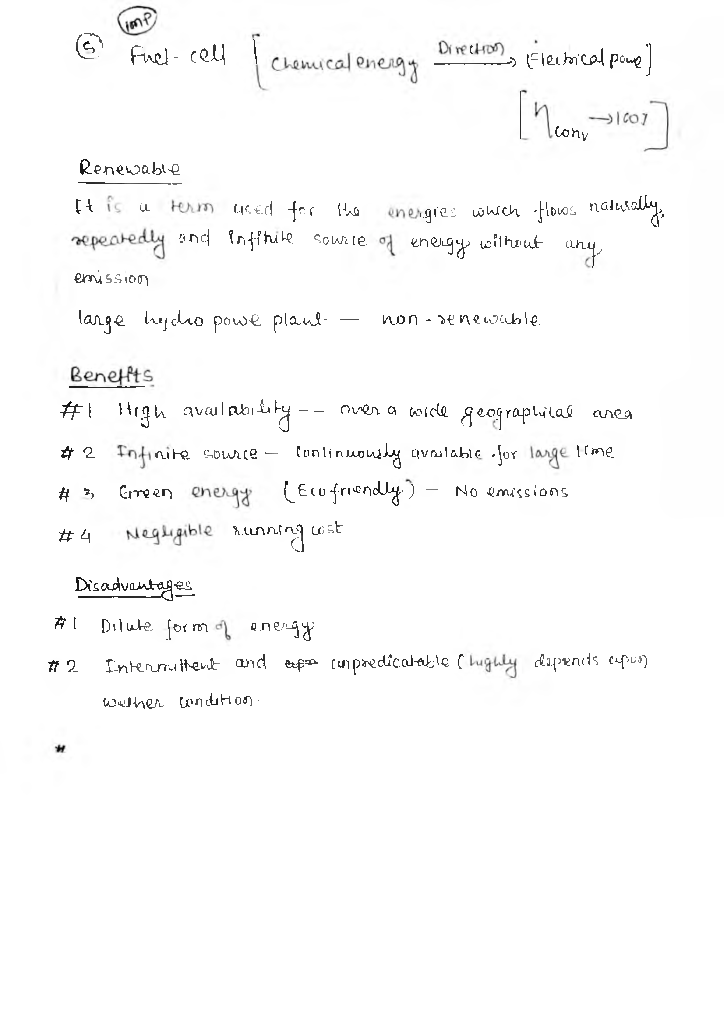 IMP
(5) Fuel-cell [Chemical energy Direction → Electrical powe]
[η conv → 100%]
Renewable
It is a term used for the energies which flows naturally,
repeatedly and infinite source of energy without any
emission
large hydro powe plant — non-renewable.
Benefits
#1 High availability -- over a wide geographical area
#2 Infinite source — Continuously available for large time
#3 Green energy (Ecofriendly) — No emissions
#4 Negligible running cost
Disadvantages
#1 Dilute form of energy
#2 Intermittent and unpredicatable (highly depends upon
wether condition.
#